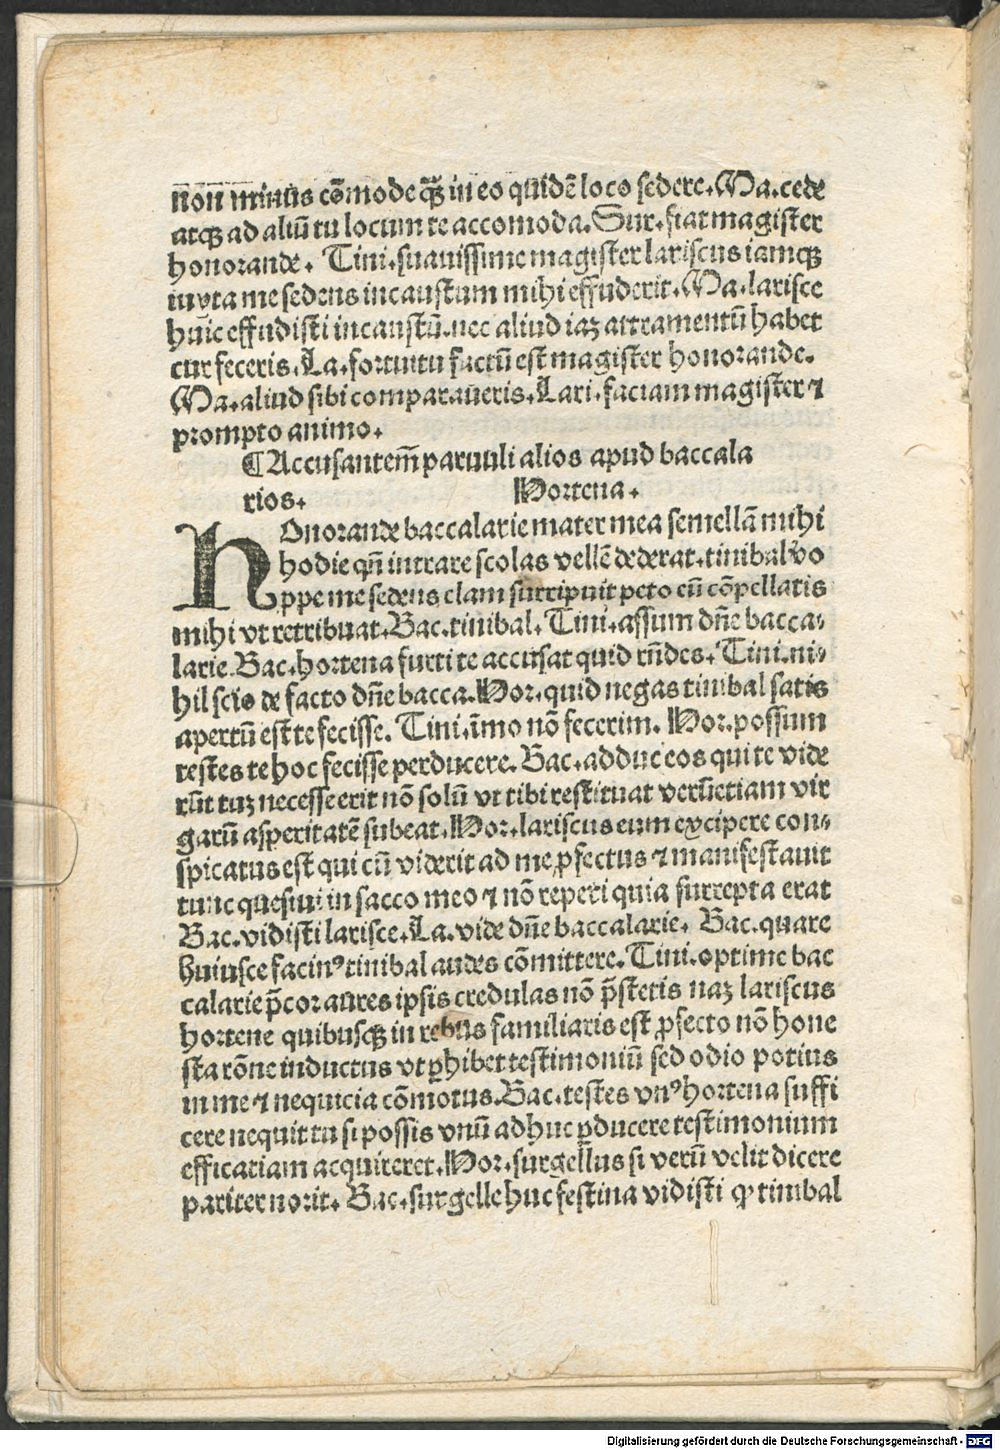 non minus cōmode qꝫ in eo quidē loco sedere. Ma. cede
atqꝫ ad aliū tu locum te accomoda. Sur. fiat magister
honorande. Tini. suauissime magister lariscus iamqꝫ
iuxta me sedens incaustum mihi effuderit. Ma. larisce
huic effudisti incaustū. nec aliud iaꝫ attramentū habet
cur feceris. La. fortuitu factū est magister honorande.
Ma. aliud sibi comparaueris. Lari. faciam magister ⁊
prompto animo.
¶ Accusantem̄ paruuli alios apud baccala
rios. Hortena.
HOnorande baccalarie mater mea semellā mihi
hodie qn̄ intrare scolas vellē dederat. tinibal vo
ppe me sedens clam surripuit peto eū cōpellatis
mihi vt retribuat. Bac. tinibal. Tini. assum dn̄e bacca-
larie. Bac. hortena furti te accusat quid rn̄des. Tini. ni-
hil scio de facto dn̄e bacca. Hor. quid negas tinibal satis
apertū est te fecisse. Tini. īmo nō fecerim. Hor. possum
testes te hoc fecisse perducere. Bac. adduc eos qui te vide
rūt tuꝫ necesse erit nō solū vt tibi restituat verūetiam vir
garū asperitatē subeat. Hor. lariscus eum excipere con-
spicatus est qui cū viderit ad me ꝓfectus ⁊ manifestauit
tunc quesiui in sacco meo ⁊ nō reperi quia surrepta erat
Bac. vidisti larisce. La. vide dn̄e baccalarie. Bac. quare
huiusce facinꝰ tinibal audes cōmittere. Tini. optime bac
calarie p̄cor aures ipsis credulas nō p̄stetis naꝫ lariscus
hortene quibusqꝫ in rebus familiaris est ꝓfecto nō hone
sta rōne inductus vt ꝑhibet testimoniū sed odio potius
in me ⁊ nequicia cōmotus. Bac. testes vnꝰ hortena suffi
cere nequit tu si possis vnū adhuc ꝓducere testimonium
efficatiam acquireret. Hor. surgellus si verū velit dicere
pariter norit. Bac. surgelle huc festina vidisti ꝙ tinibal
Digitalisierung gefördert durch die Deutsche Forschungsgemeinschaft - DFG